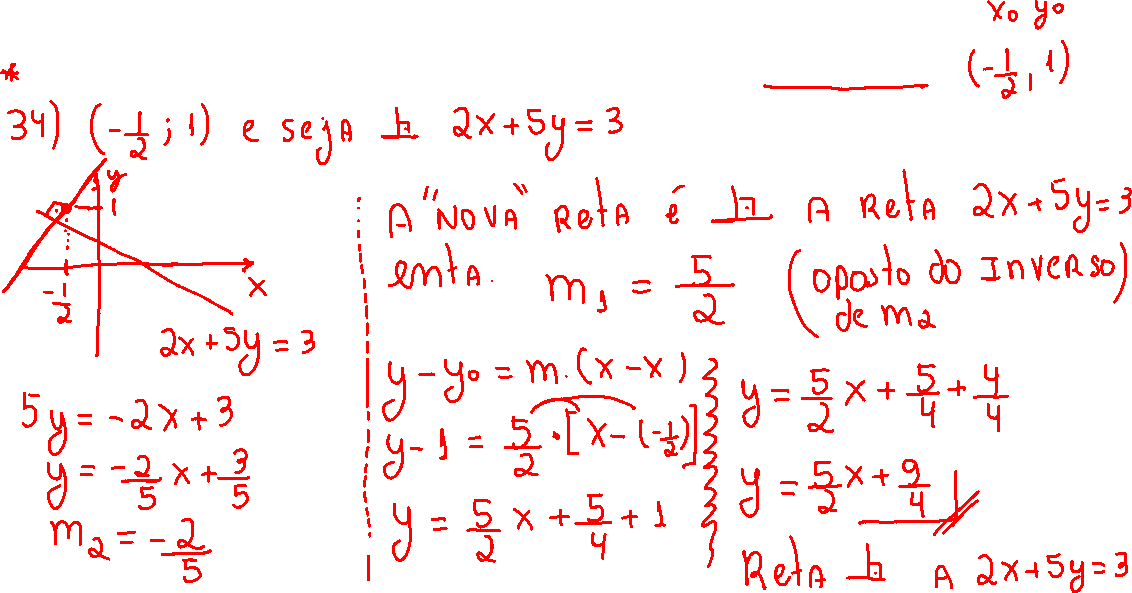 x₀ y₀
(-1/2, 1)
*
34) (-1/2 ; 1) e seja ⊥ 2x+5y=3
y
1
-1/2
x
2x+5y=3
5y=-2x+3
y=-2/5 x+3/5
m₂=-2/5
A "NOVA" Reta é ⊥ A Reta 2x+5y=3
enta. m₁ = 5/2 (oposto do Inverso) de m₂
y-y₀=m.(x-x)
y-1=5/2·[x-(-1/2)]
y=5/2 x+5/4+1
y=5/2 x+5/4+4/4
y=5/2 x+9/4
Reta ⊥ A 2x+5y=3